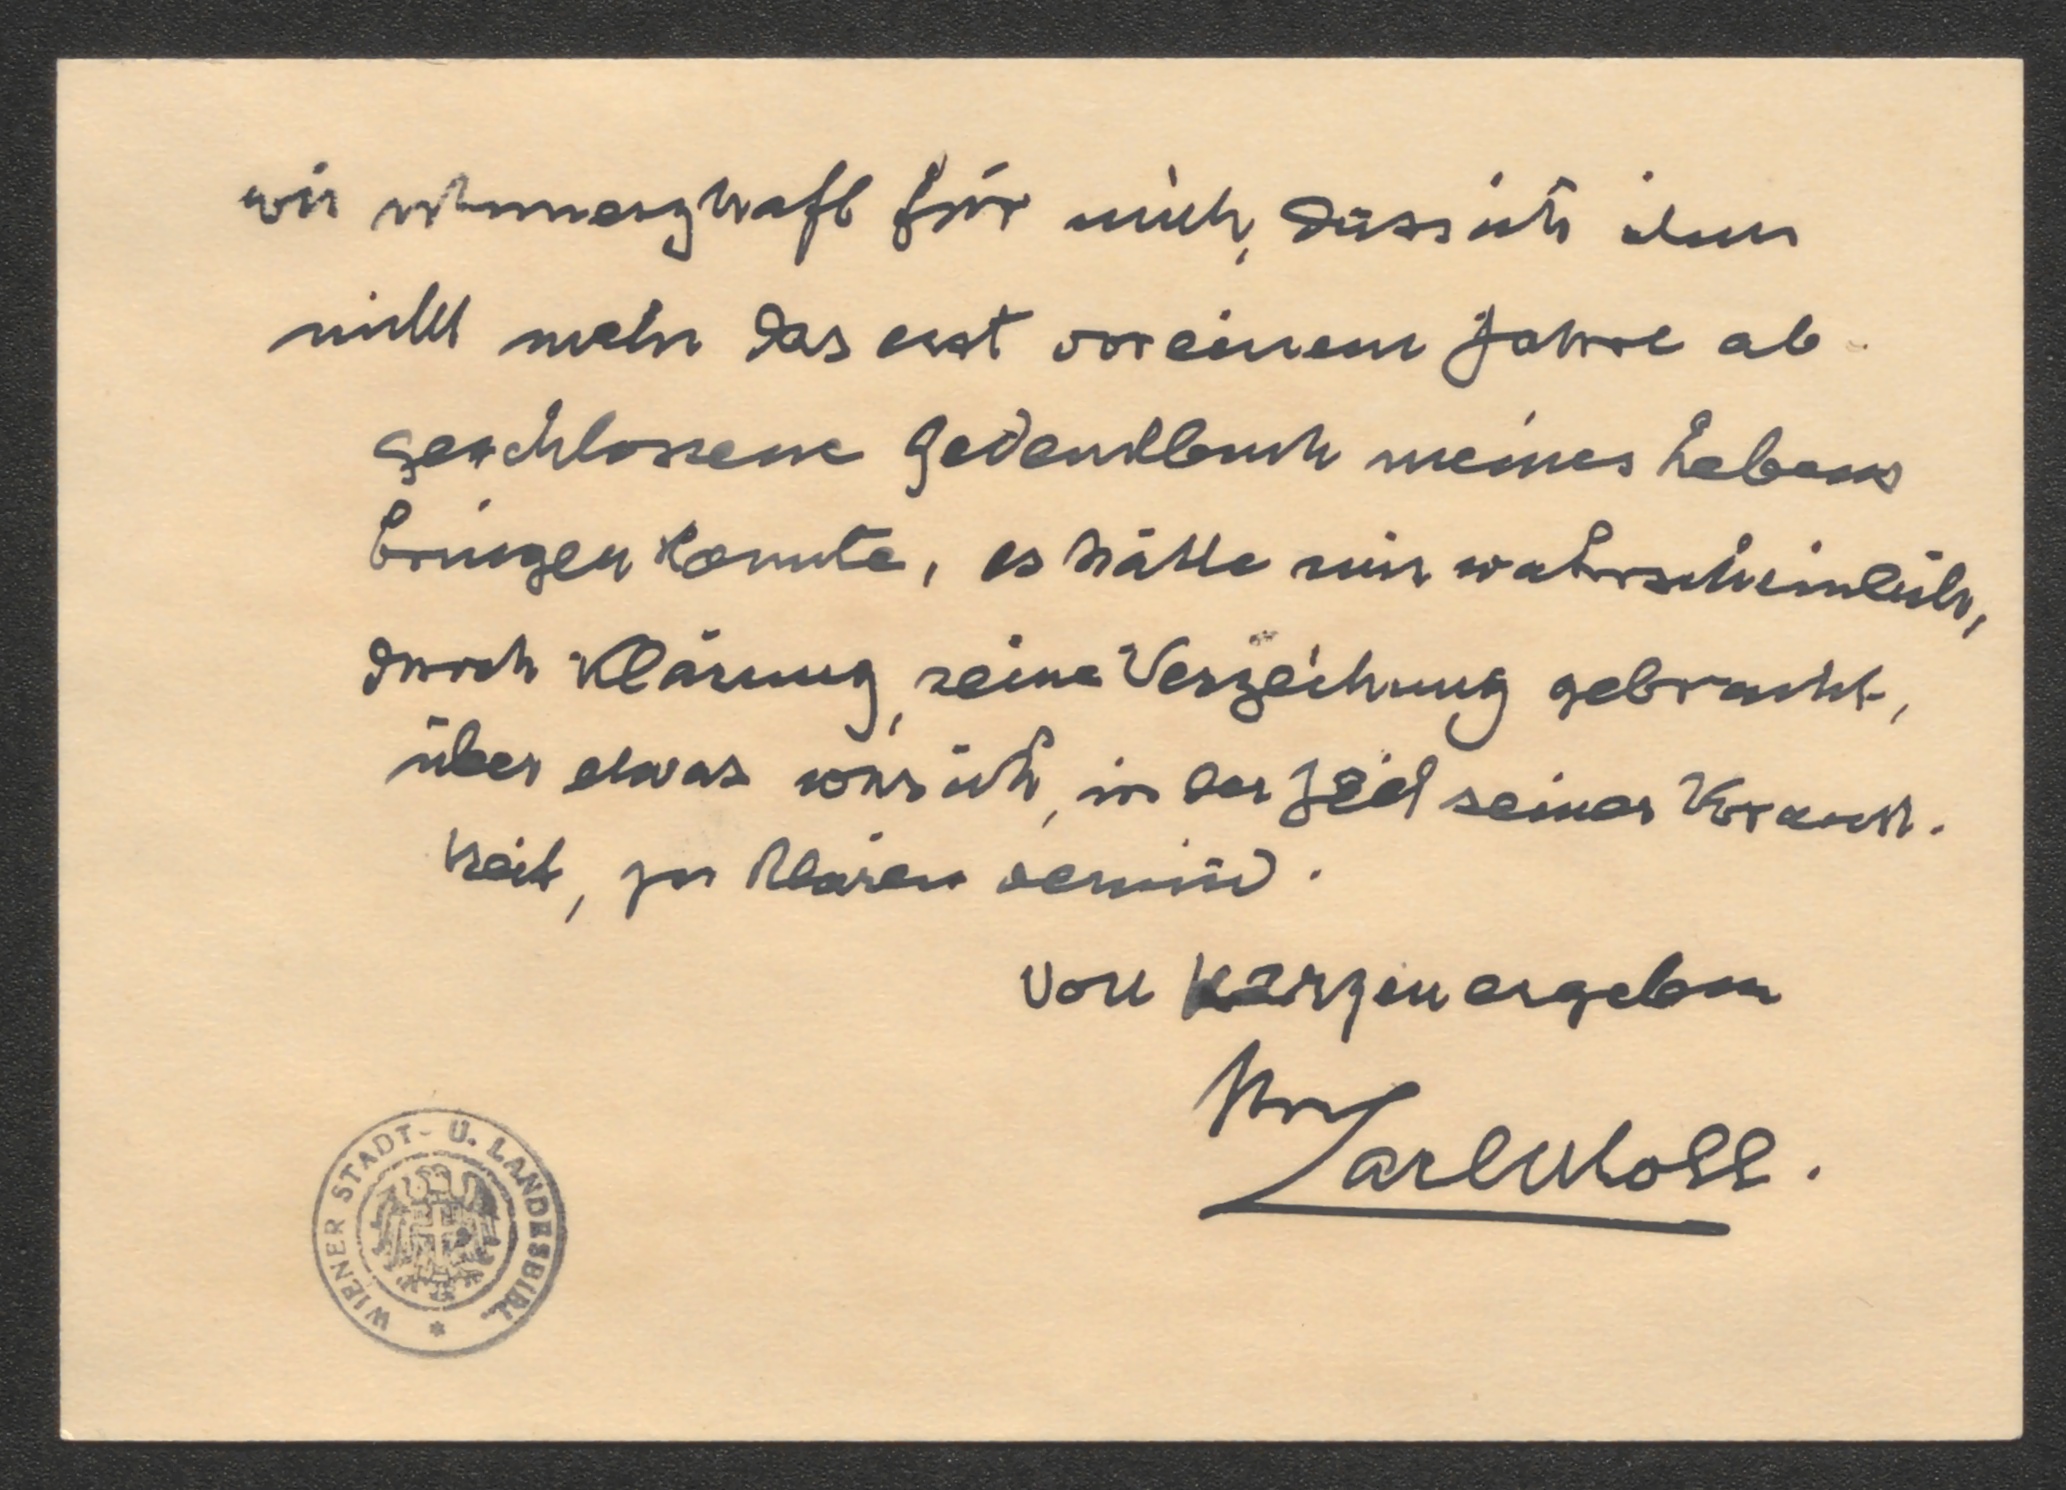 wie schmerzhaft für mich, dass ich ihm
nicht mehr das erst vor einem Jahre ab-
geschlossene Gedenkbuch meines Lebens
bringen konnte, es hätte mir wahrscheinlich,
durch Klärung, seine Verzeihung gebracht,
über etwas was ich, in der Zeit seiner Krank-
heit, zu klären vermied.
Von Herzen ergeben
Ihr
Carl Moll.
WIENER STADT- U. LANDESBIBL.